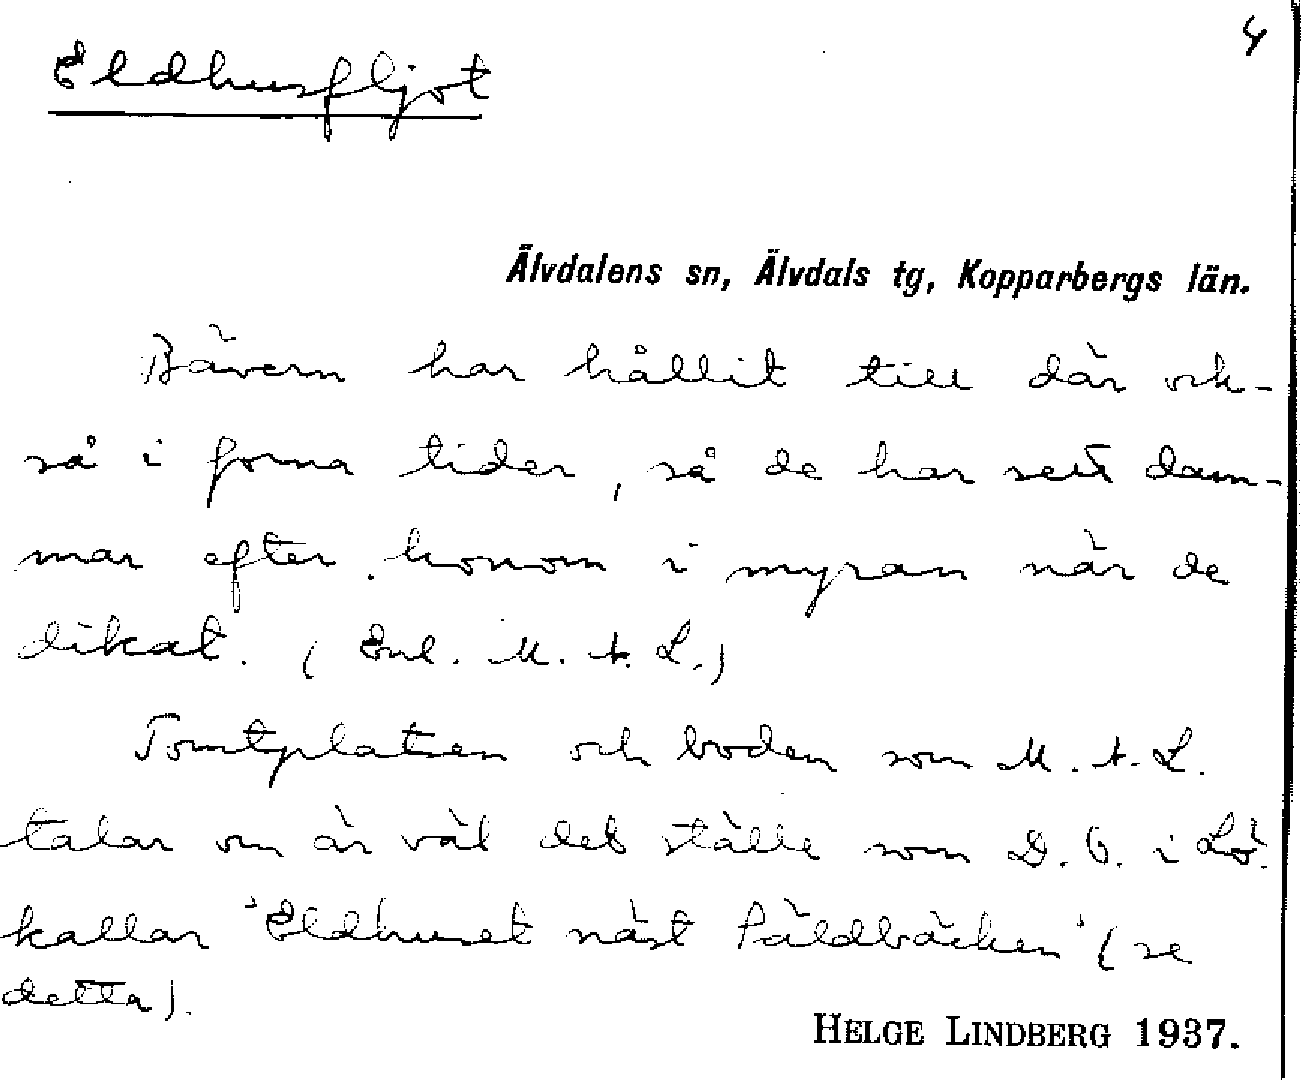 4
Eldhusfljot
Älvdalens sn, Älvdals tg, Kopparbergs län.
Bävern har hållit till där ock-
så i forna tider, så de har sett dam-
mar efter honom i myran när de
dikat. (Enl. M. A. L.)
Tomtplatsen och boden som M. A. L.
talar om är väl det ställe som D. O. i Lö.
kallar 'Eldhuset näst Päldbäcken' (se
detta).
HELGE LINDBERG 1937.